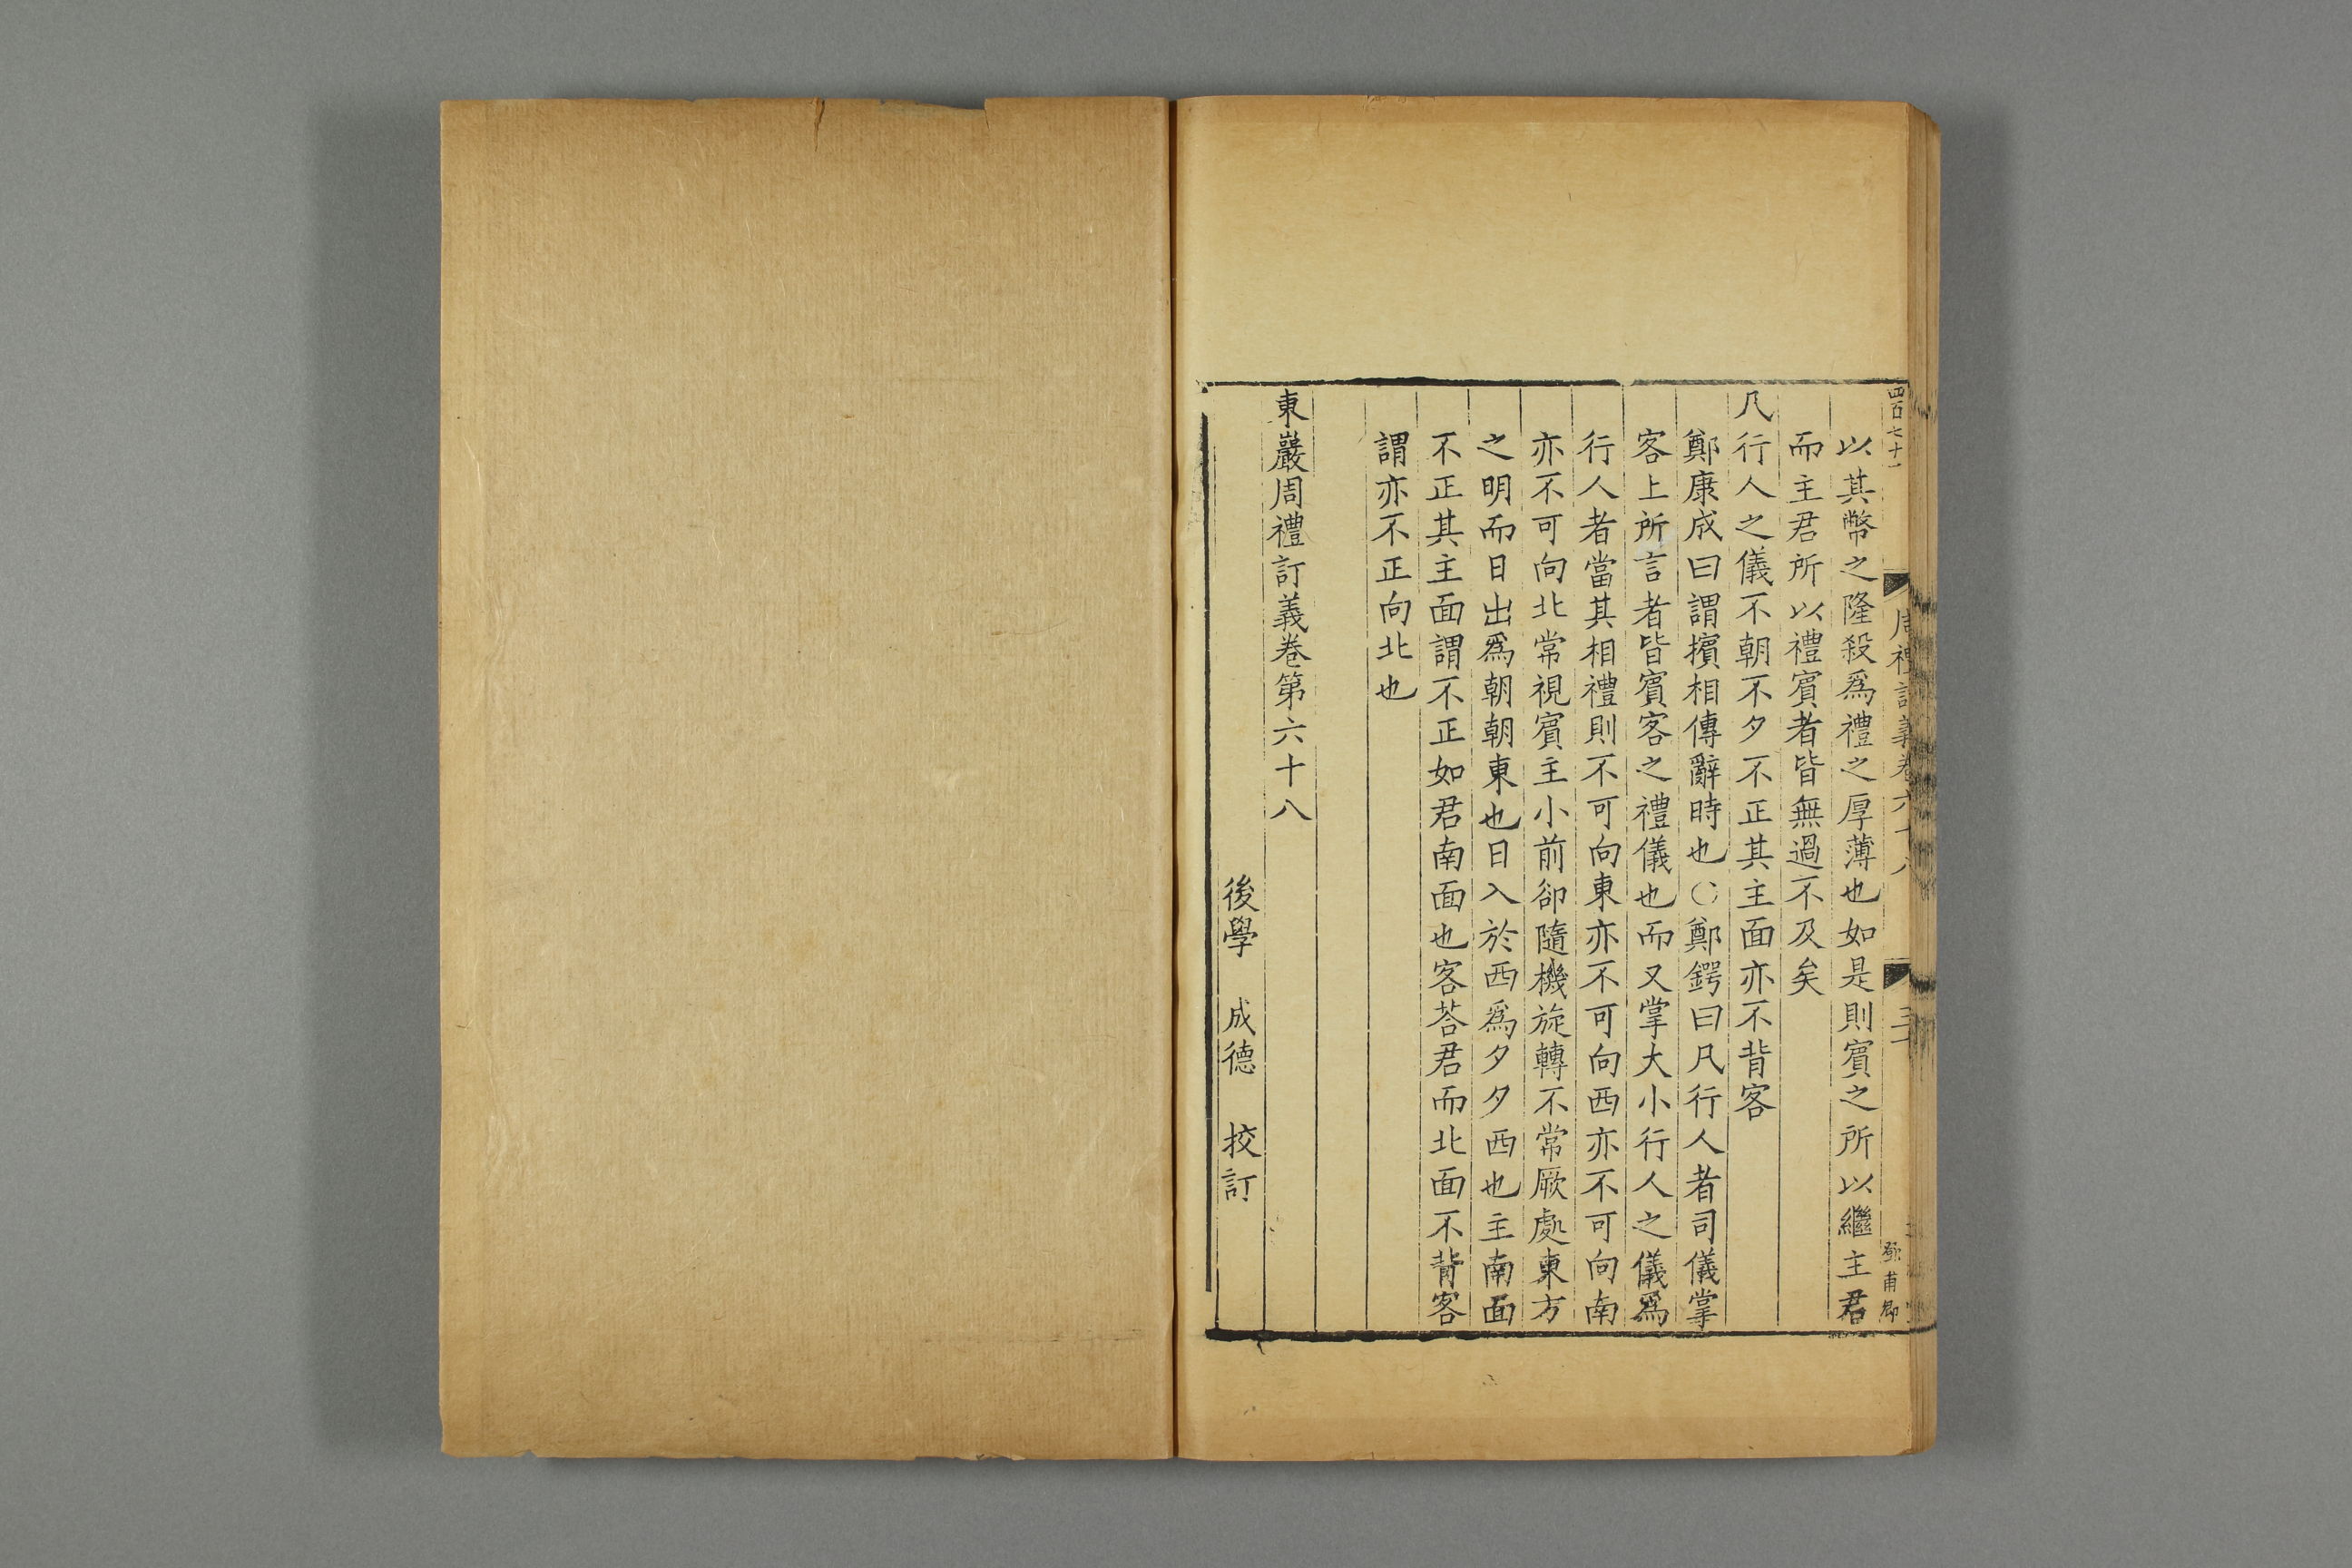 四百七十一
周禮訂義卷六十八
以其幣之隆殺爲禮之厚薄也如是則賓之所以繼主君
而主君所以禮賓者皆無過不及矣
凡行人之儀不朝不夕不正其主面亦不背客
鄭康成曰謂擯相傳辭時也〇鄭鍔曰凡行人者司儀掌
客上所言者皆賓客之禮儀也而又掌大小行人之儀爲
行人者當其相禮則不可向東亦不可向西亦不可向南
亦不可向北常視賓主小前卻隨機旋轉不常厥處東方
之明而日出爲朝朝東也日入於西爲夕夕西也主南面
不正其主面謂不正如君南面也客荅君而北面不背客
謂亦不正向北也
東巖周禮訂義卷第六十八
後學 成德 挍訂